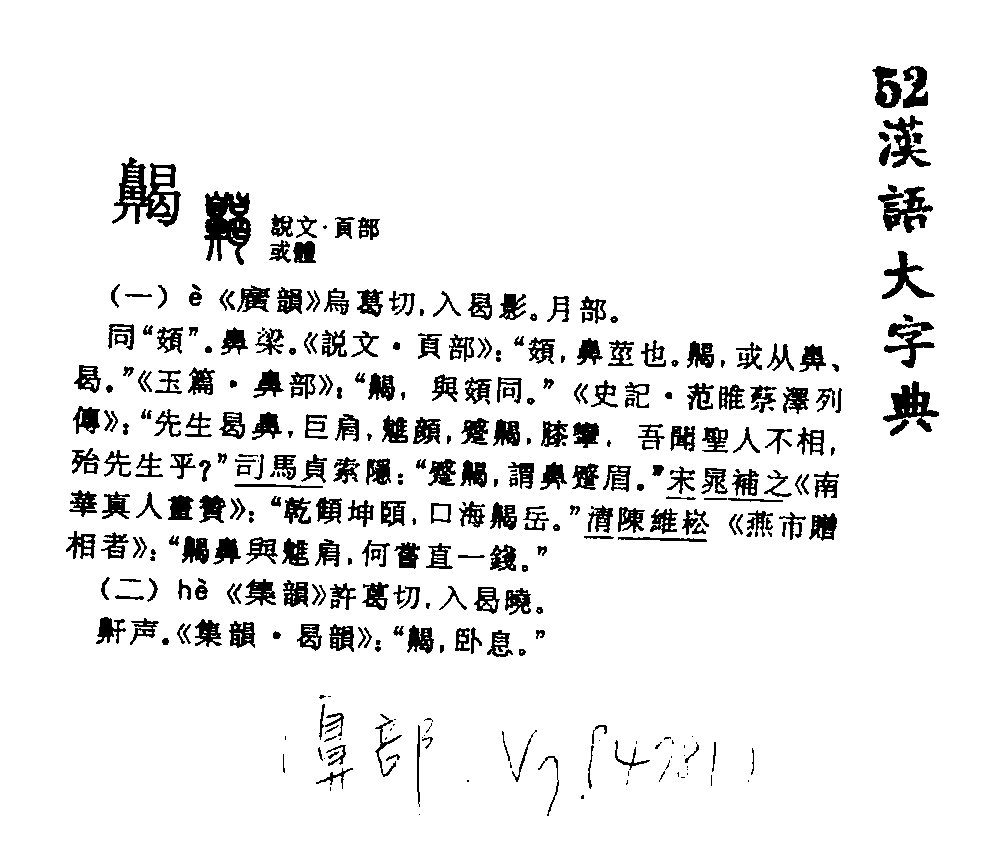 52漢語大字典
齃
說文·頁部
或體
(一) è 《廣韻》烏葛切,入曷影。月部。
同“頞”。鼻梁。《説文·頁部》:“頞,鼻莖也。齃,或从鼻、
曷。”《玉篇·鼻部》:“齃,與頞同。”《史記·范睢蔡澤列
傳》:“先生曷鼻,巨肩,魋顔,蹙齃,膝攣,吾聞聖人不相,
殆先生乎?”司馬貞索隱:“蹙齃,謂鼻蹙眉。”宋晁補之《南
華真人畫贊》:“乾顀坤頤,口海齃岳。”清陳維崧《燕市贈
相者》:“齃鼻與魋肩,何嘗直一錢。”
(二) hè 《集韻》許葛切,入曷曉。
鼾声。《集韻·曷韻》:“齃,卧息。”
(鼻部. V7.P4781)